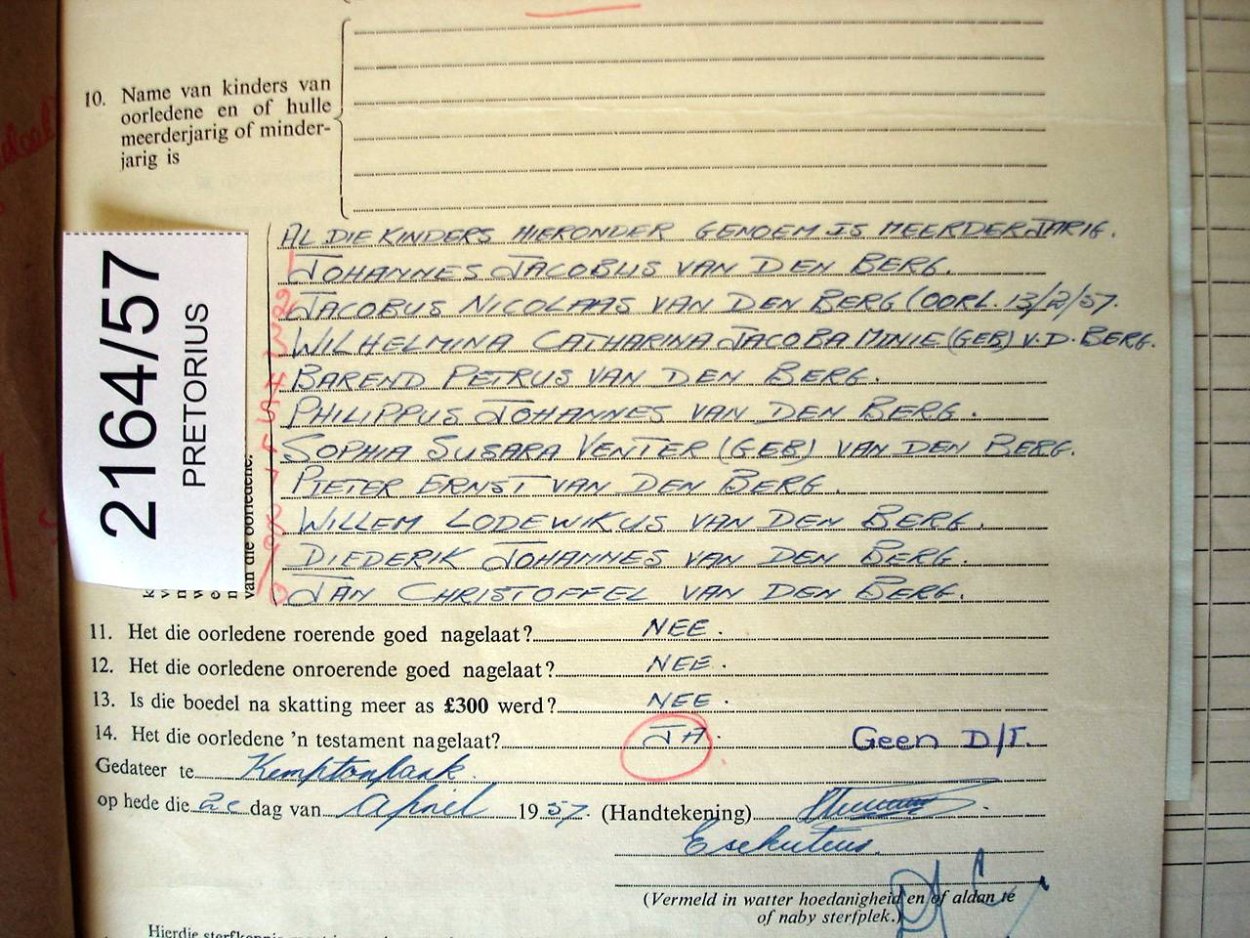 10. Name van kinders van
oorledene en of hulle
meerderjarig of minder-
jarig is
2164/57
PRETORIUS
van die oorledene.
AL DIE KINDERS HIERONDER GENOEM IS MEERDERJARIG.
1 JOHANNES JACOBUS VAN DEN BERG.
2 JACOBUS NICOLAAS VAN DEN BERG (OORL. 13/2/57.
3 WILHELMINA CATHARINA JACOBA MINIE (GEB) V.D. BERG.
4 BAREND PETRUS VAN DEN BERG.
5 PHILIPPUS JOHANNES VAN DEN BERG.
SOPHIA SUSARA VENTER (GEB) VAN DEN BERG.
PIETER ERNST VAN DEN BERG.
8 WILLEM LODEWIKUS VAN DEN BERG.
9 DIEDERIK JOHANNES VAN DEN BERG.
10 JAN CHRISTOFFEL VAN DEN BERG.
11. Het die oorledene roerende goed nagelaat? NEE.
12. Het die oorledene onroerende goed nagelaat? NEE.
13. Is die boedel na skatting meer as £300 werd? NEE.
14. Het die oorledene 'n testament nagelaat? JA. Geen D/T.
Gedateer te Kemptonpark.
op hede die 2e dag van April 1957. (Handtekening)
Eksekuteur.
(Vermeld in watter hoedanigheid en of aldan te
of naby sterfplek.)